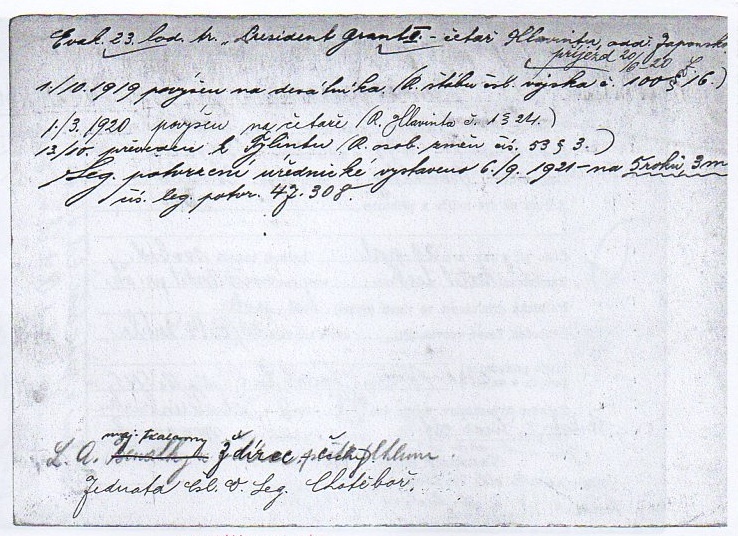 Evak. 23. lod. tr. „President Grant II. - četař Hlavintu, odd. Japonsko
příjezd 20/6 20
1./10. 1919 povýšen na desátníka (R. štábu čsl. vojska č. 100 § 16.)
1./3. 1920 povýšen na četaře (R. Hlavinta č. 1 § 24.)
13/10. převeden k Týlintu (R. osob. změn čís. 53 § 3.)
Leg. potvrzení úřednické vystaveno 6./9. 1921 - na 5 roků, 3 m
čís. leg. potvr. 47.308
maj. Kalamy
L. A. Ždírec, Chlum
Jednota čsl. v. Leg. Chotěboř.